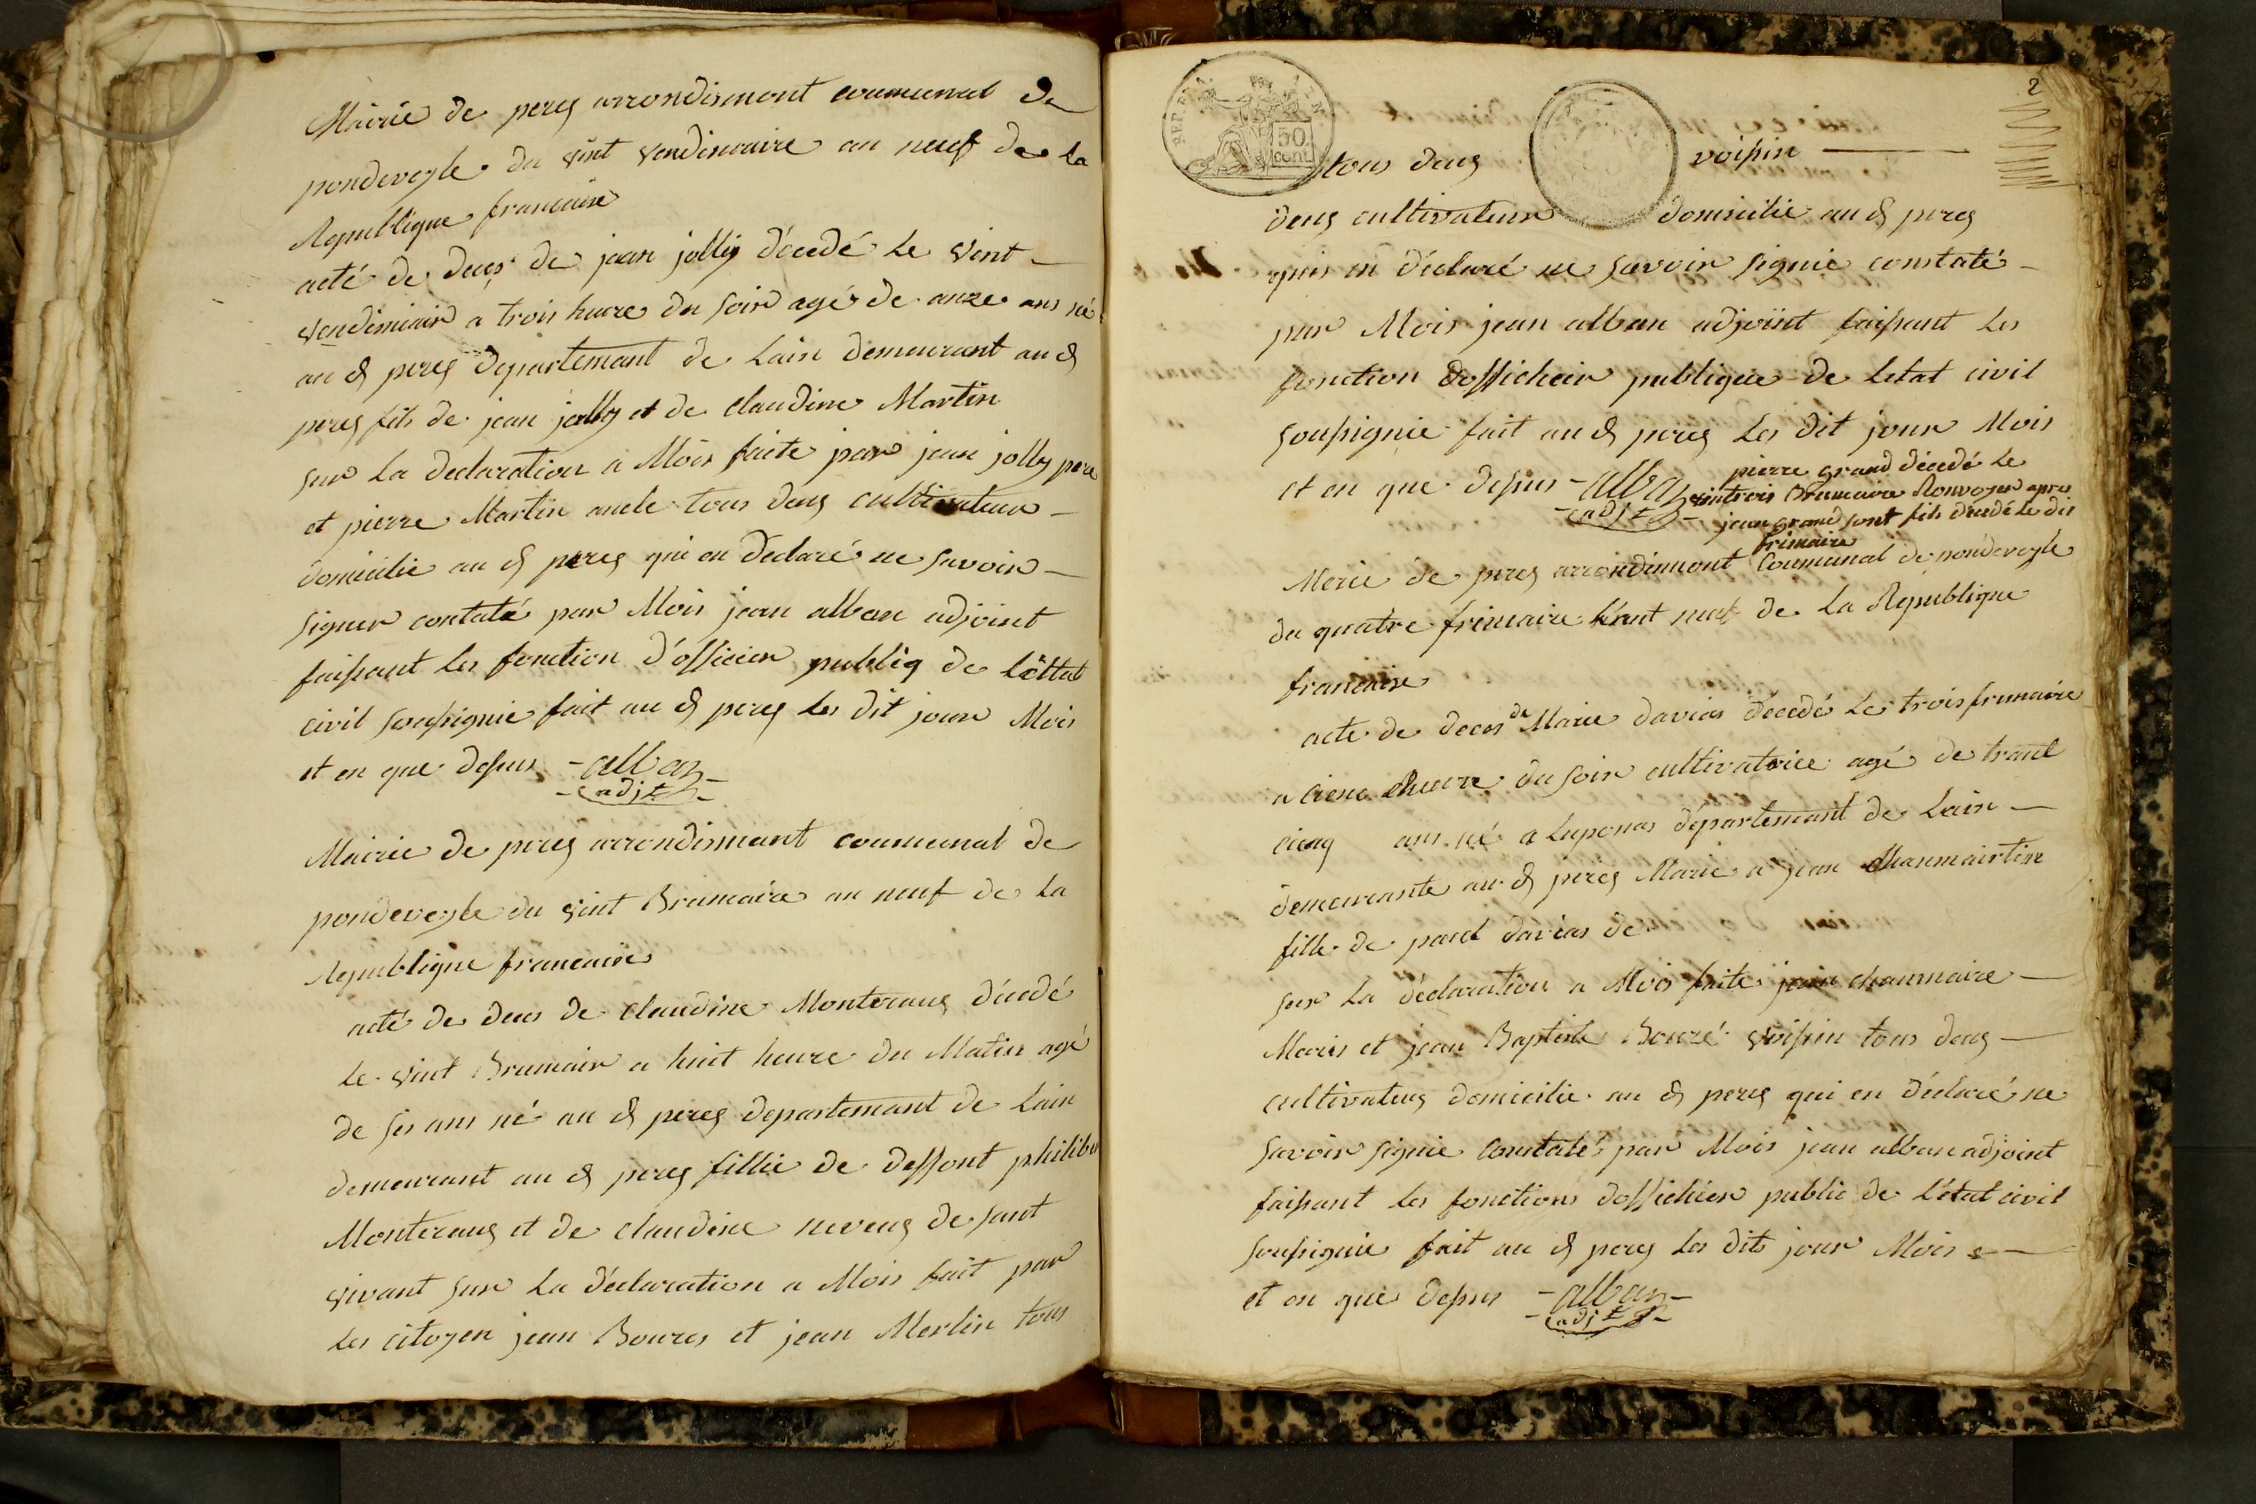 Mairie de perex arrondisment coumunal de
pondeveyle du vint vendimaire an neuf de la
Republique francaise
acté de deces de jean jolly décedé le vint
vendimiair a trois heure du soir agé de onze ans né
au d perex departemant de Lain demeurant au d
perex fils de jean jolly et de claudine Martin
sur La declaration a Mois faite par jean jolly pere
et pierre Martin oncle tous deux cultivateur
domicilie au d perex qui on declaré ne savoir
signer contaté par Mois jean alban adjoint
faissant les fonction d'officier publiq de Léttat
civil soussignie fait au d perex les dit jour Mois
et en que dessus - alban -
- adjt -
Mairie de perex arrondismant coumunal de
pondeveyle du vint Brumaire an neuf de La
Republique francaise
acté de deces de claudine Monteraux décedé
le vint Brumair a huit heure du Matin agé
de sis ans né au d perex departemant de Lain
demeurant au d perex fillie de deffont philiber
Monteraux et de claudine neveux de sont
vivant sur La déclaration a Mois fait par
les citoyen jean Boures et jean Merlin tous
2
REP. FRA.
50
cent
tous deux voisin
deux cultivateur domicilie au d perex
quis on déclaré ne savoir signie constaté
par Mois jean alban adjoint faissant les
fonction doffichier publique de Letat civil
soussignie fait au d perex les dit jour Mois
et en que dessus - alban
- adjt -
pierre grand décedé le
vintrois Brumaire Renvoyer apres
jean grand sont fils décedé le dis
frimaire
Merie de perex arrondimont Coumunal de pondeveyle
du quatre frimaire Lant neuf de La Republique
francaise
acte de deces de Marie davias décedé Le trois frimaire
a cienc dheure du soir cultivatrice agé de trant
cienq ans né a Laponas département de Lain
demeurante au d perex Marie a jean Chanmairtin
fille de paul davias de
sur La déclaration a Mois faite jean chanmaire
Maris et jean Baptiste Bouré voissin tous deux
cultivateux domicilie au d perex qui en déclaré ne
savoir signie constaté par Mois jean alban adjoint
faissant les fonctions doffichier public de L'état civil
soussignie fait au d perex les dits jour Mois
et en que dessus - alban -
- adjt -